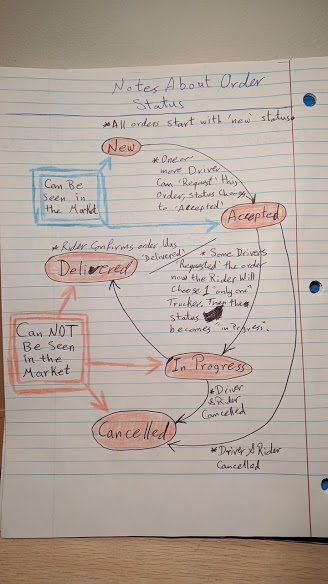 Notes About Order
Status
* All orders start with 'new' status
New
Can Be
Seen in
the Market
* One or
more Driver
Can 'Request' this
Order, status Change
to 'Accepted'
Accepted
* Rider Confirms order was
'Delivered'
Delivered
* Some Drivers
'Requested' the order
now the Rider Will
Choose 1 "only one"
Trucker, Then the
status
becomes "in Progress".
Can NOT
Be Seen
in the
Market
In Progress
* Driver
& Rider
Cancelled
Cancelled
* Driver & Rider
Cancelled